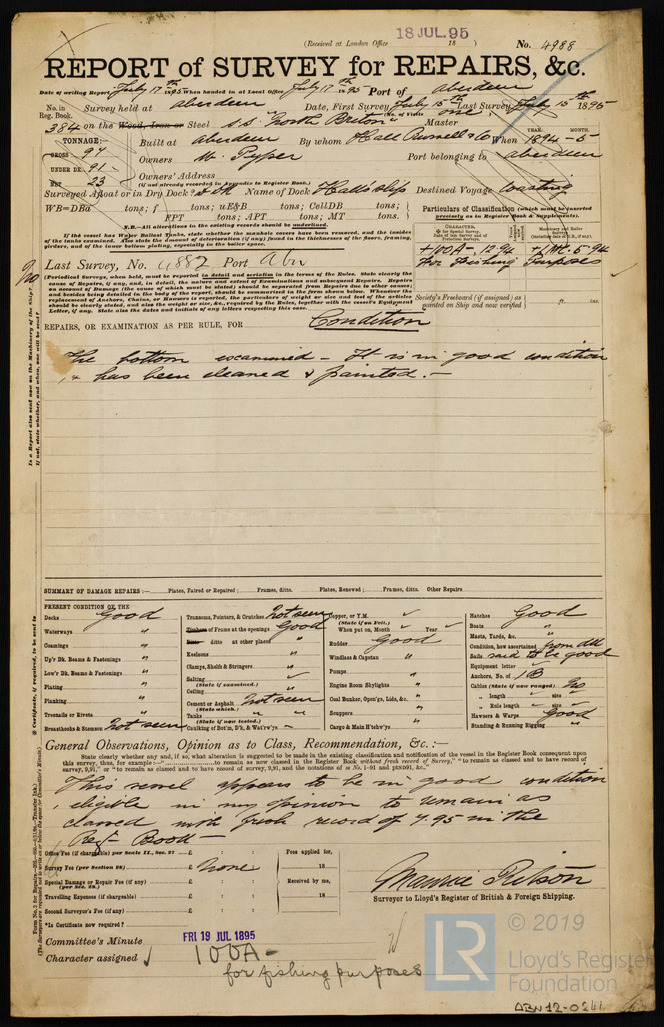 18 JUL.95
(Received at London Office 18 )
No. 4988
REPORT of SURVEY for REPAIRS, &c.
Date of writing Report July 17th 1895 When handed in at Local Office July 17th 1895 Port of Aberdeen
No. in Reg. Book. Survey held at Aberdeen Date, First Survey July 15th Last Survey July 15th 1895
(No. of Visits one)
384 on the Wood, Iron or Steel s.s. "North Briton" Master
TONNAGE:—
GROSS 97
UNDER DK. 91
NET 23
Built at Aberdeen By whom Hall Russell & Co When 1894-5
YEAR. MONTH.
Owners W. Pyper Port belonging to Aberdeen
Owners' Address
(if not already recorded in Appendix to Register Book.)
Surveyed Afloat or in Dry Dock? Name of Dock Hall's slip Destined Voyage Coasting
WB=DBa tons; { uE&B tons; CellDB tons; }
FPT tons; APT tons; MT tons.
N.B.—All alterations in the existing records should be underlined.
If the vessel has Water Ballast Tanks, state whether the manhole covers have been removed, and the insides
of the tanks examined. Also state the amount of deterioration (if any) found in the thicknesses of the floors, framing,
girders, and of the inner bottom plating, especially in the boiler space.
Particulars of Classification (which must be inserted
precisely as in Register Book & Supplements).
+100A- 12.94 +LMC. 5.94
For Fishing Purposes
Last Survey, No. 4882 Port Abn
(Periodical Surveys, when held, must be reported in detail and seriatim in the terms of the Rules. State clearly the
cause of Repairs, if any, and, in detail, the nature and extent of Examinations and subsequent Repairs. Repairs
on account of Damage (the cause of which must be stated) should be separated from Repairs due to other causes;
and besides being detailed in the body of the report, should be summarised in the form shown below. Whenever the
replacement of Anchors, Chains, or Hawsers is reported, the particulars of weight or size and test of the articles
should be clearly stated, and also the weight or size, &c., required by the Rules, together with the vessel's Equipment
Letter, if any. State also the dates and initials of any letters respecting this case.
Society's Freeboard (if assigned) as
painted on Ship and now verified } ft. ins.
REPAIRS, OR EXAMINATION AS PER RULE, FOR Condition
The bottom examined - It is in good condition
& has been cleaned & painted.—
No
Is a Report also sent now on the Machinery of the Ship?
If not, state whether, and when, one will be sent?
SUMMARY OF DAMAGE REPAIRS:— Plates, Faired or Repaired; Frames, ditto. Plates, Renewed; Frames, ditto. Other Repairs
PRESENT CONDITION OF THE
Decks Good
Waterways "
Coamings "
Up'r Dk. Beams & Fastenings "
Low'r Dk. Beams & Fastenings "
Plating "
Planking "
Treenails or Rivets "
Breasthooks & Stemson Not seen
Transoms, Pointers, & Crutches Not seen
Timbers of Frame at the openings Good
Ditto ditto at other places "
Keelsons "
Clamps, Shelfs & Stringers "
Salting
(State if examined.)
Ceiling "
Cement or Asphalt Not seen
(State which.)
Tanks " "
(State if now tested.)
Caulking of Bot'm, D'k, & Wat'rw'ys
Copper, or Y.M.
(State if on Felt.)
When put on, Month Year
Rudder Good
Windlass & Capstan "
Pumps "
Engine Room Skylights "
Coal Bunker, Open'gs, Lids, &c. "
Scuppers "
Cargo & Main H'tchw'ys "
Hatches Good
Boats "
Masts, Yards, &c. "
Condition, how ascertained from dk
Sails said to be good
Equipment letter
Anchors, No. of 1B
Cables (State if now ranged) No
" length " size
" Rule length " size
Hawsers & Warps Good
Standing & Running Rigging "
General Observations, Opinion as to Class, Recommendation, &c. :—
State clearly whether any, and if so, what alteration is suggested to be made in the existing classification and notification of the vessel in the Register Book consequent upon
this survey, thus, for example—"to remain as now classed in the Register Book without fresh record of Survey," "to remain classed and to have record of
survey, 9,91," or "to remain classed and to have record of survey, 9,91, and the notations of ss No. 1-91 and ptND91, &c."
This vessel appears to be in good condition
& eligible in my opinion to remain as
classed with fresh record of 7.95 in the
Regr. Book —
Office Fee (if chargeable) per Scale II., Sec. 2? £ : :
Survey Fee (per Section 28) £ None
Special Damage or Repair Fee (if any) £ : :
(per Sec. 28.)
Travelling Expenses (if chargeable) £ : :
Second Surveyor's Fee (if any) £ : :
*Is Certificate now required?
Fees applied for,
18
Received by me,
18
Surveyor to Lloyd's Register of British & Foreign Shipping.
Committee's Minute FRI 19 JUL 1895
Character assigned 100A-
for fishing purposes
© 2019
LR
Lloyd's Register
Foundation
ABN12-0241